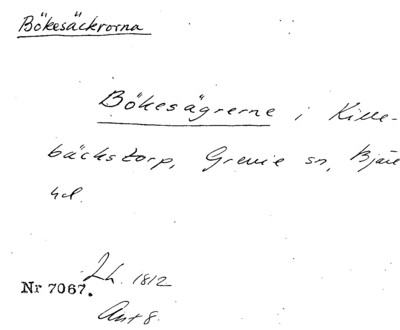 Bökesäckrorna
Bökesägrerne i Kille-
bäckstorp, Grevie sn, Bjäre
hd.
Lh. 1812
Nr 7067.
Akt 8.